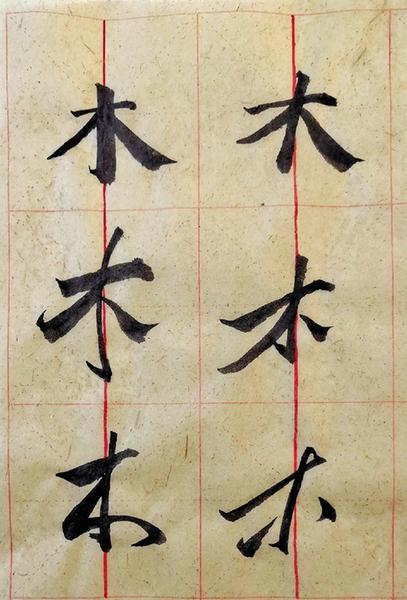 木木木
木木木